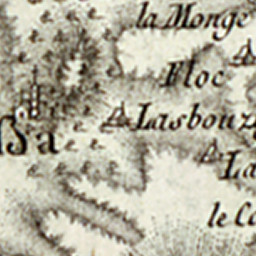 la Monge
Floc
Lasbouz
La
le Ca